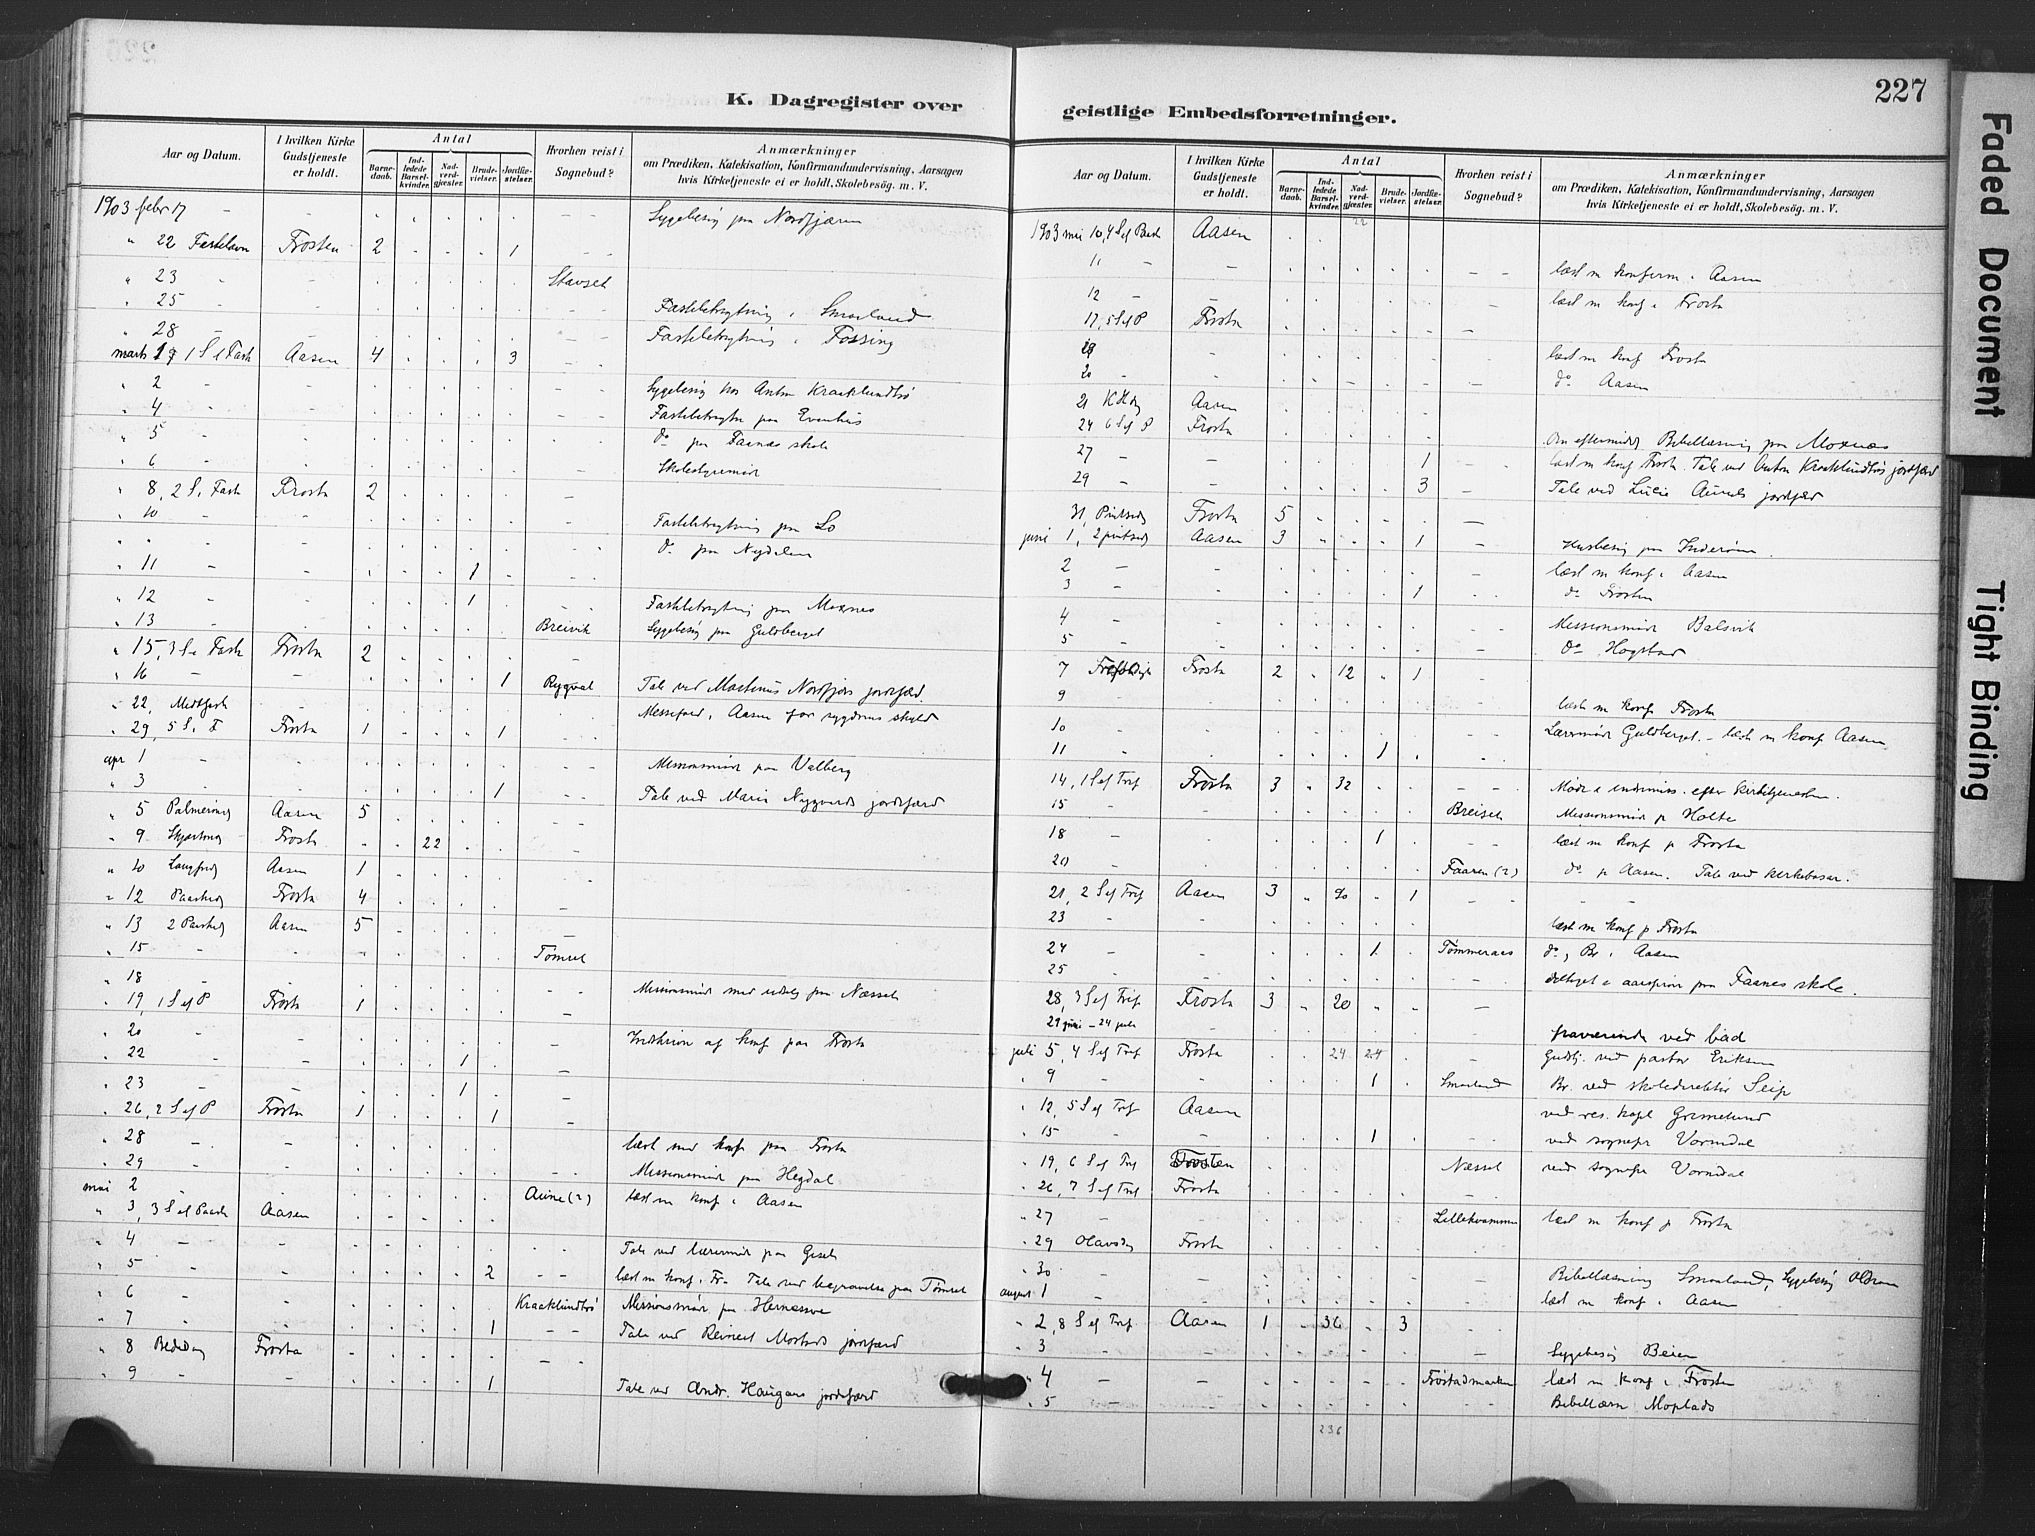 227
K. Dagregister over
geistlige Embedsforretninger.
Faded Document
Tight Binding
Aar og Datum.
I hvilken Kirke Gudstjeneste er holdt.
Antal
Barnedaab.
Indledede Barselkvinder.
Nadverdgjæster.
Brudevielser.
Jordfæstelser.
Hvorhen reist i Sognebud?
Anmærkninger
om Prædiken, Katekisation, Konfirmandundervisning, Aarsagen
hvis Kirketjeneste ei er holdt, Skolebesøg. m. V.
1903 febr 17 Sygebesøg paa Nordfjæren
" 22 Fastelavn Frosten 2 1
" 23 Stavset
" 25 Fastebetragtning i Smaaland
" 28 Fastebetragtning i Fossing
marts 1 S i Fast Aasen 4 3
" 2 Sygebesøg hos Anton Kraaklundbø
" 4 Fastebetragtn paa Evenhus
" 5 do paa Faanes skole
" 6 Skolestyremøde
" 8, 2 S. i Fast Frosta 2
" 10 Fastebetragtning paa Lo
" " do paa Nydelen
" 11 1
" 12 1 Fastebetragtning paa Moxnes
" 13 Breivik Sygebesøg paa Guldberget
" 15, 3 S i Fast Frosta 2
" 16 1 Rygval Tale ved Martinus Nordfjærs jordfæst
" 22, Midtfast Messefald i Aasen for sygdoms skyld
" 29, 5 S. i F Frosta 1 1
apr 1 Missionsmøde paa Valberg
" 3 1 Tale ved Maria Nygaards jordfærd
" 5 Palmesøndag Aasen 5
" 9 Skjærtorsdag Frosta 22
" 10 Langfredag Aasen 1
" 12 Paaskedag Frosta 4
" 13 2 Paaskedag Aasen 5
" 15 Tømset
" 18 Missionsmøde med udsalg paa Næsset
" 19, 1 S ef P Frosta 1
" 20 Indskrivn af konf paa Frosta
" 22 1
" 23 1
" 26, 2 S ef P Frosta 1 1
" 28 læst med konf paa Frosta
" 29 Missionsmøde paa Hegdal
mai 2 Aune (2) læst m konf i Aasen
" 3, 3 S ef Paask Aasen
" 4 Tale ved læremøde paa Gisel
" 5 2 læst m konf i Fr. Tale ved begravelse paa Tømset
" 6 Kraaklundbø Missionsmøde paa Hernesve
" 7 1 Tale ved Reinert Mostads jordfærd
" 8 Bededag Frosta
" 9 1 Tale ved Andr. Haugans jordfærd
Aar og Datum.
I hvilken Kirke Gudstjeneste er holdt.
Antal
Barnedaab.
Indledede Barselkvinder.
Nadverdgjæster.
Brudevielser.
Jordfæstelser.
Hvorhen reist i Sognebud?
Anmærkninger
om Prædiken, Katekisation, Konfirmandundervisning, Aarsagen
hvis Kirketjeneste ei er holdt, Skolebesøg. m. V.
22
1903 mai 10, 4 S ef Paask Aasen
11 læst m konfirm i Aasen
12 læst m konf i Frosta
17, 5 S ef P Frosta
19 læst m konf Frosta
20 do Aasen
21 K H dg Aasen
24 6 S ef P Frosta Om eftermiddag Bibellæsning paa Moxnes
27 1 læst m konf Frosta. Tale ved Anton Kraaklundbøs jordfærd
29 3 Tale ved Lucie Aunets jordfærd
31, Pintsedag Frosta 5
juni 1, 2 pintsedag Aasen 3 1 Husbesøg paa Inderøen.
2 læst m konf i Aasen
3 1 do Frosten
4 Missionsmøde Balsvik
5 do Hogstad
7 Trefoldigh Frosta 2 12 1
9 læst m konf Frosta
10 Læremøde Guldberget. – læst m konf Aasen
11 1
14, 1 S ef Tref Frosta 3 32 Møde i indremiss. efter kirketjenesten.
15 Breiset Missionsmøde p Holte
18 1 læst m konf p Frosta
20 Faaren (2) do p Aasen. Tale ved kirkebasar.
21, 2 S ef Tref Aasen 3 20 1
23 læst m konf p Frosta
24 1 Tømmeraas do, Br. i Aasen
25 deltaget i aarsprøve paa Faanes skole.
28, 3 S ef Tref Frosta 3 20
29 juni – 24 juli fraværende ved bad
juli 5, 4 S ef Tref Frosta 24 24 Gudstj. ved pastor Eriksen
" 9 1 Smaaland Br. ved skoledirektør Seip
" 12, 5 S ef Tref Aasen ved res. kapl Grimelund
" 15 1 ved sognepr Vormdal
" 19, 6 S ef Tref Frosten Næsset ved sognepr Vormdal
" 26, 7 S ef Tref Frosta
" 27 Lillekvammen læst m konf p Frosta
" 29 Olavsdag Frosta
" 30 Bibellæsning Smaaland, Sygebesøg Oldren
august 1 læst m konf i Aasen
" 2, 8 S ef Tref Aasen 1 36 3
" 3 Sygebesøg Beien
" 4 Frøstadmarken læst m konf i Frosten
" 5 Bibellæsn Moplads
236